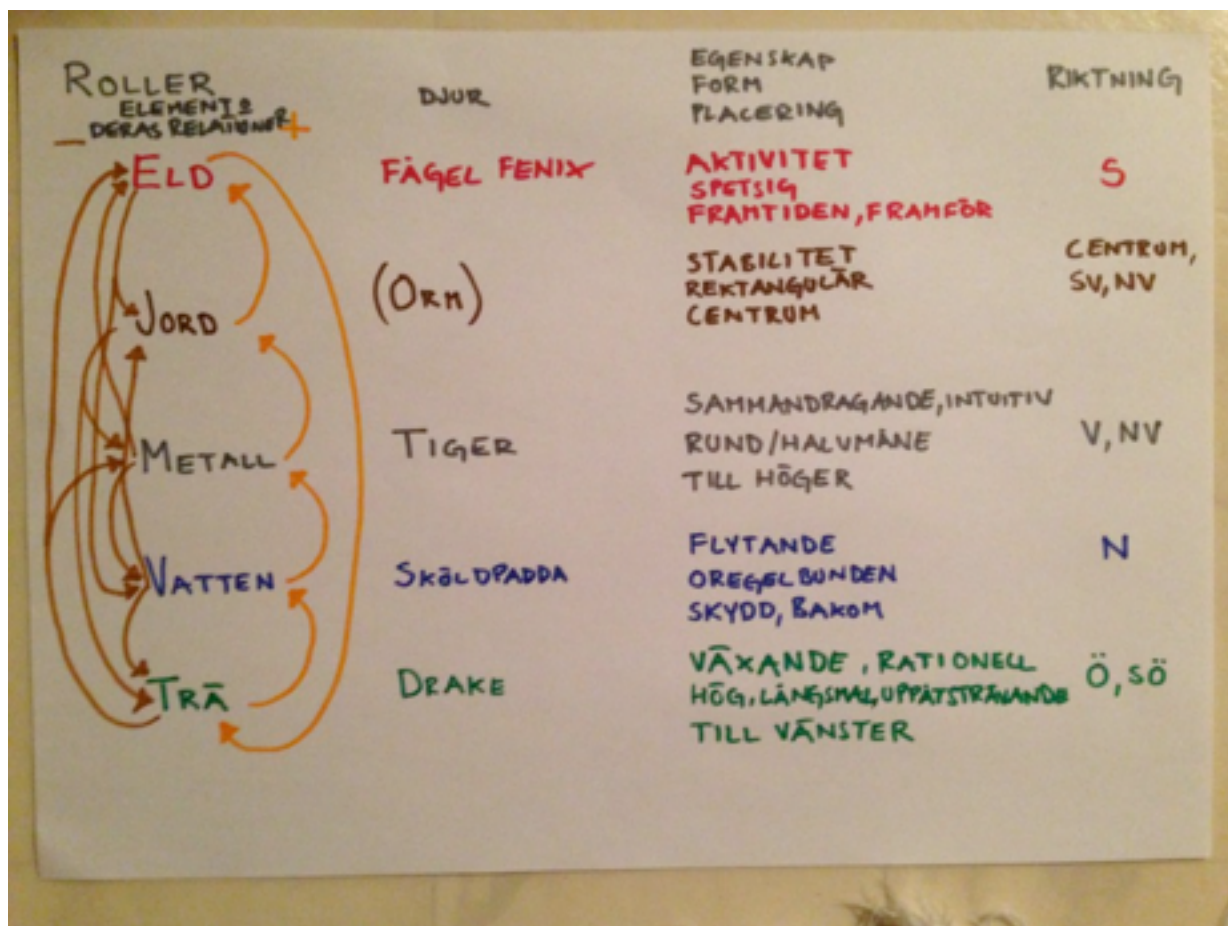 ROLLER
ELEMENT &
DERAS RELATIONER
- +
DJUR
EGENSKAP
FORM
PLACERING
RIKTNING
ELD
FÅGEL FENIX
AKTIVITET
SPETSIG
FRAMTIDEN, FRAMFÖR
S
JORD
(ORM)
STABILITET
REKTANGULÄR
CENTRUM
CENTRUM,
SV, NV
METALL
TIGER
SAMMANDRAGANDE, INTUITIV
RUND/HALVMÅNE
TILL HÖGER
V, NV
VATTEN
SKÖLDPADDA
FLYTANDE
OREGELBUNDEN
SKYDD, BAKOM
N
TRÄ
DRAKE
VÄXANDE, RATIONELL
HÖG, LÅNGSMAL, UPPÅTSTRÄVANDE
TILL VÄNSTER
Ö, SÖ